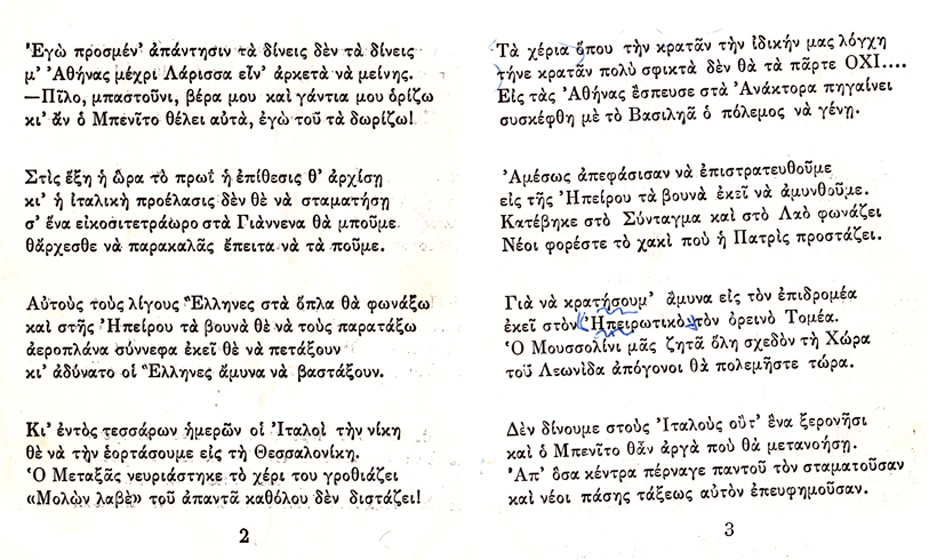 Ἐγὼ προσμέν' ἀπάντησιν τὰ δίνεις δὲν τὰ δίνεις
μ' Ἀθήνας μέχρι Λάρισσα εἶν' ἀρκετὰ νὰ μείνης.
—Πῖλο, μπαστοῦνι, βέρα μου καὶ γάντια μου ὁρίζω
κι' ἂν ὁ Μπενῖτο θέλει αὐτὰ, ἐγὼ τοῦ τὰ δωρίζω!
Στὶς ἕξη ἡ ὥρα τὸ πρωῒ ἡ ἐπίθεσις θ' ἀρχίσῃ
κι' ἡ ἰταλικὴ προέλασις δὲν θὲ νὰ σταματήσῃ
σ' ἕνα εἰκοσιτετράωρο στὰ Γιάννενα θὰ μποῦμε
θἄρχεσθε νὰ παρακαλᾶς ἔπειτα νὰ τὰ ποῦμε.
Αὐτοὺς τοὺς λίγους Ἕλληνες στὰ ὅπλα θὰ φωνάξω
καὶ στῆς Ἠπείρου τὰ βουνὰ θὲ νὰ τοὺς παρατάξω
ἀεροπλάνα σύννεφα ἐκεῖ θὲ νὰ πετάξουν
κι' ἀδύνατο οἱ Ἕλληνες ἄμυνα νὰ βαστάξουν.
Κι' ἐντὸς τεσσάρων ἡμερῶν οἱ Ἰταλοὶ τὴν νίκη
θὲ νὰ τὴν ἑορτάσουμε εἰς τὴ Θεσσαλονίκη.
Ὁ Μεταξᾶς νευριάστηκε τὸ χέρι του γροθιάζει
«Μολὼν λαβὲ» τοῦ ἀπαντᾶ καθόλου δὲν διστάζει!
2
Τὰ χέρια ὅπου τὴν κρατᾶν τὴν ἰδικήν μας λόγχη
τήνε κρατᾶν πολὺ σφικτὰ δὲν θὰ τὰ πᾶρτε ΟΧΙ....
Εἰς τὰς Ἀθήνας ἔσπευσε στὰ Ἀνάκτορα πηγαίνει
συσκέφθη μὲ τὸ Βασιληᾶ ὁ πόλεμος νὰ γένῃ.
Ἀμέσως ἀπεφάσισαν νὰ ἐπιστρατευθοῦμε
εἰς τῆς Ἠπείρου τὰ βουνὰ ἐκεῖ νὰ ἀμυνθοῦμε.
Κατέβηκε στὸ Σύνταγμα καὶ στὸ Λαὸ φωνάζει
Νέοι φορέστε τὸ χακὶ ποὺ ἡ Πατρὶς προστάζει.
Γιὰ νὰ κρατήσουμ' ἄμυνα εἰς τὸν ἐπιδρομέα
ἐκεῖ στὸν Ἠπειρωτικὸ τὸν ὀρεινὸ Τομέα.
Ὁ Μουσσολίνι μᾶς ζητᾶ ὅλη σχεδὸν τὴ Χώρα
τοῦ Λεωνίδα ἀπόγονοι θὰ πολεμῆστε τώρα.
Δὲν δίνουμε στοὺς Ἰταλοὺς οὔτ' ἕνα ξερονῆσι
καὶ ὁ Μπενῖτο θἆν ἀργὰ ποὺ θὰ μετανοήσῃ.
Ἀπ' ὅσα κέντρα πέρναγε παντοῦ τὸν σταματοῦσαν
καὶ νέοι πάσης τάξεως αὐτὸν ἐπευφημοῦσαν.
3